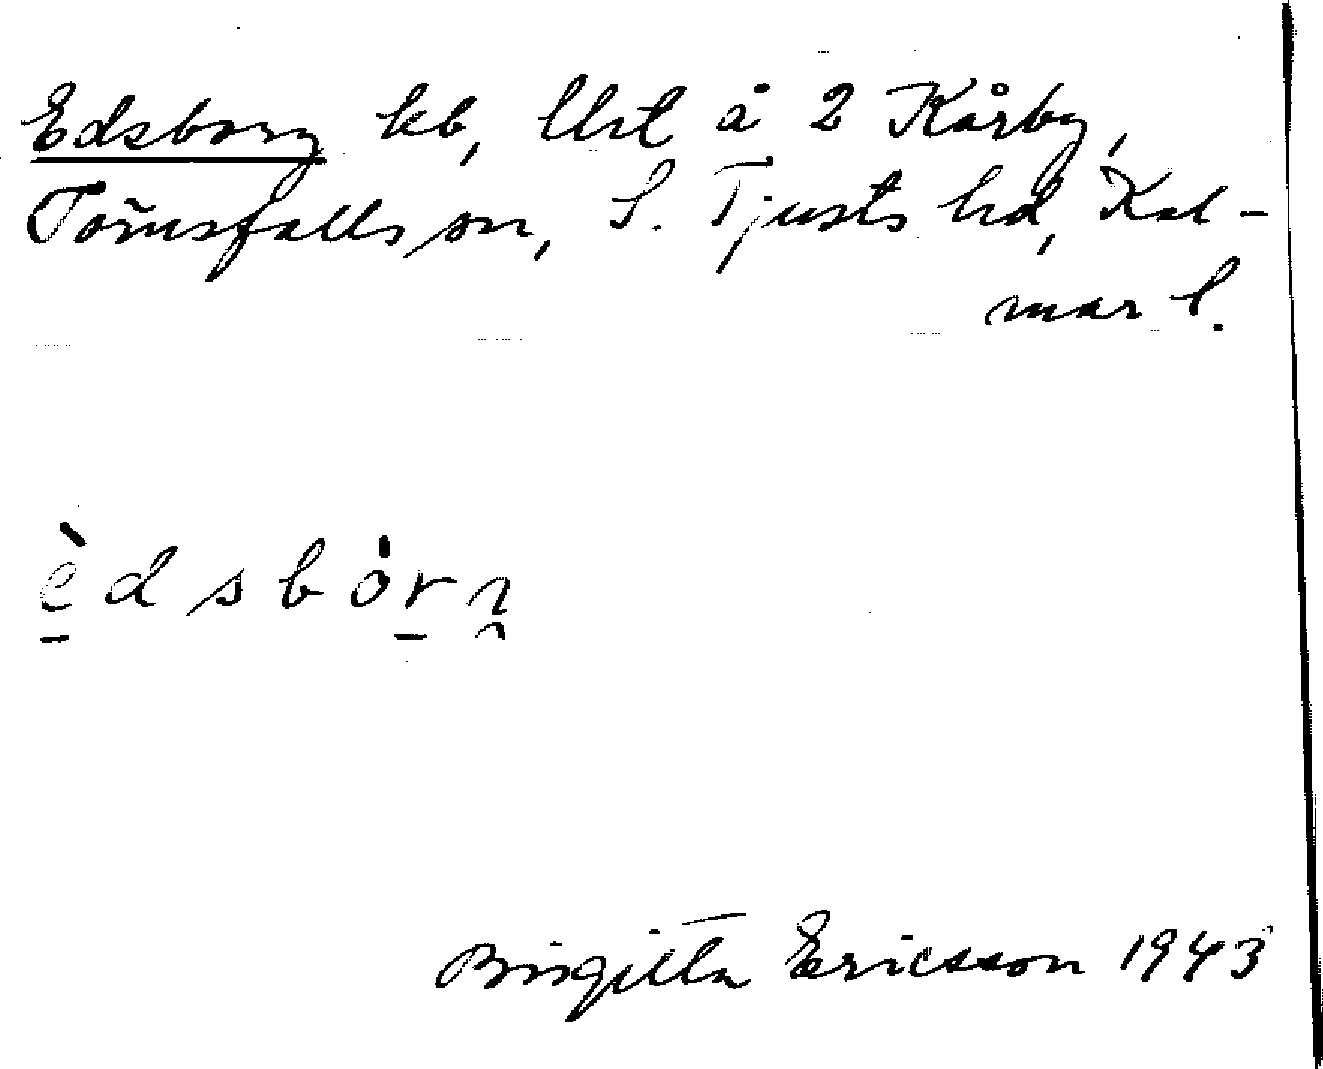 Edsborg kb, Url å 2 Kårby,
Törnsfalls sn, S. Tjusts hd, Kal-
mar l.
èdsbòrn
Birgitta Ericsson 1943